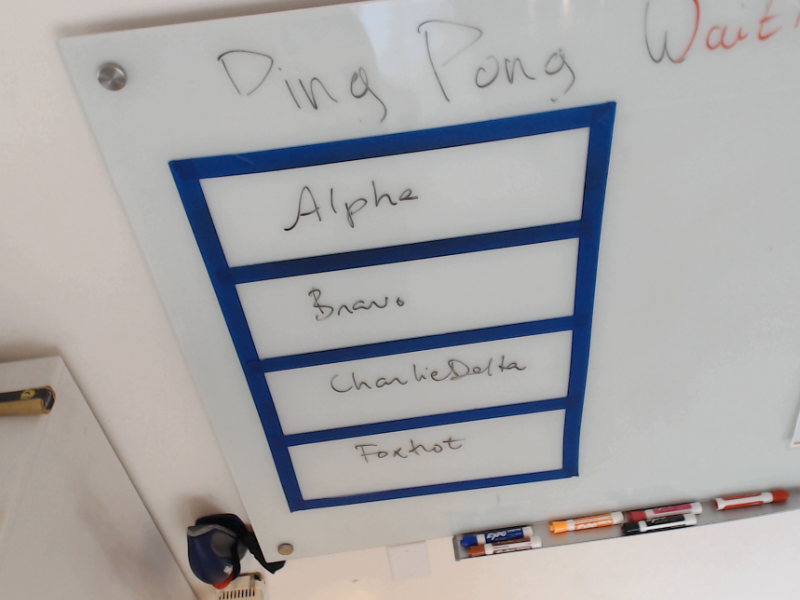 Ping Pong
Wait
Alpha
Bravo
CharlieDelta
Foxtrot
EXPO